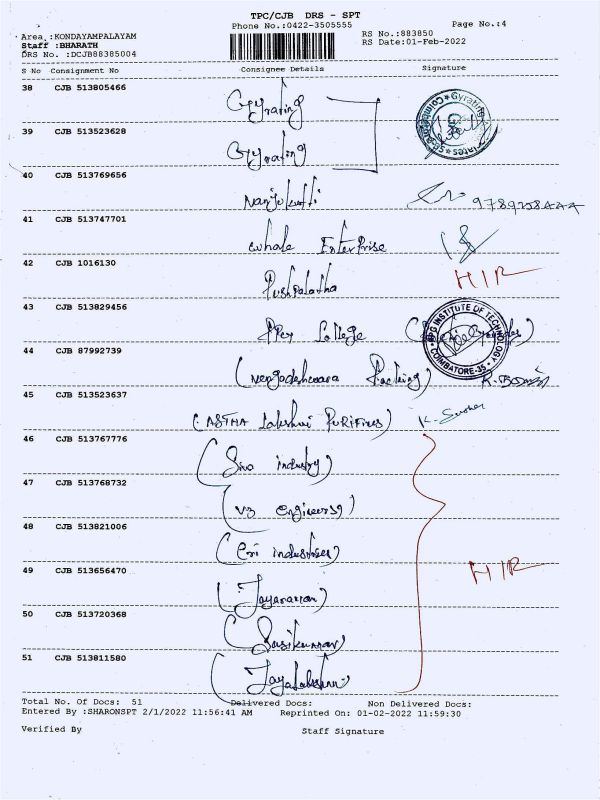 TPC/CJB DRS - SPT
Phone No.:0422-3505555
Page No.:4
Area :KONDAYAMPALAYAM
RS No.:883850
Staff :BHARATH
RS Date:01-Feb-2022
DRS No. :DCJB88385004
S No Consignment No Consignee Details Signature
38 CJB 513805466 Gyrating
39 CJB 513523628 Gyrating
40 CJB 513769656
41 CJB 513747701 whale Enterprise
42 CJB 1016130 Pushpalatha HIR
43 CJB 513829456 College
INSTITUTE OF TECHNOLOGY
COIMBATORE-35
44 CJB 87992739
45 CJB 513523637 (ASTHA Lakshmi
46 CJB 513767776 (Siva industry)
47 CJB 513768732 engineers)
48 CJB 513821006
49 CJB 513656470 HIR
50 CJB 513720368 (Sasikumar)
51 CJB 513811580
Total No. Of Docs: 51 Delivered Docs: Non Delivered Docs:
Entered By :SHARONSPT 2/1/2022 11:56:41 AM Reprinted On: 01-02-2022 11:59:30
Verified By Staff Signature